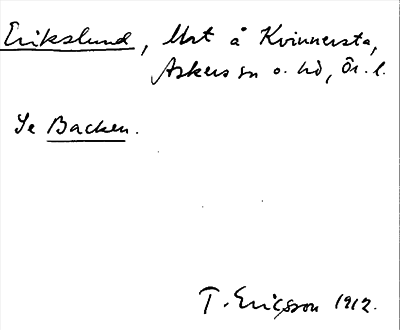 Erikslund, Urt å Kvinnersta,
Askers sn o. hd, Ör. l.
Se Backen.
T. Ericsson 1912.